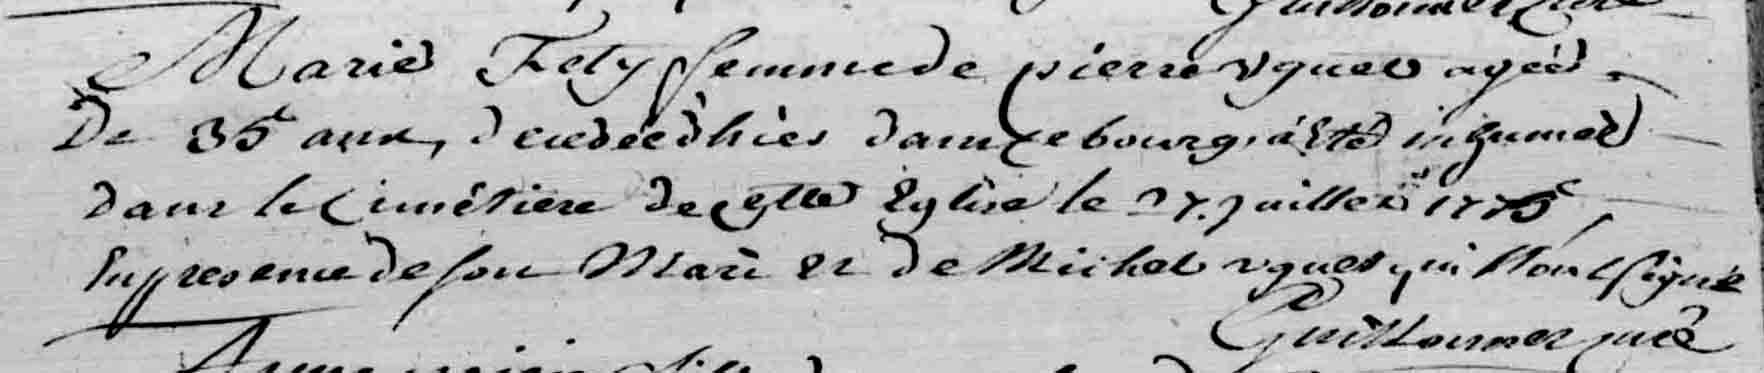 Guillonnet Curé
Marie Fety femme de pierre vguet agée
De 35 ans, decedée d'hier dans ce bourg, a été inhumée
dans le Cimétiere de cette Eglise le 27. juillet 1775,
En presence de son Mari et de Michel vguet qui n'ont signé
Guillonnet curé